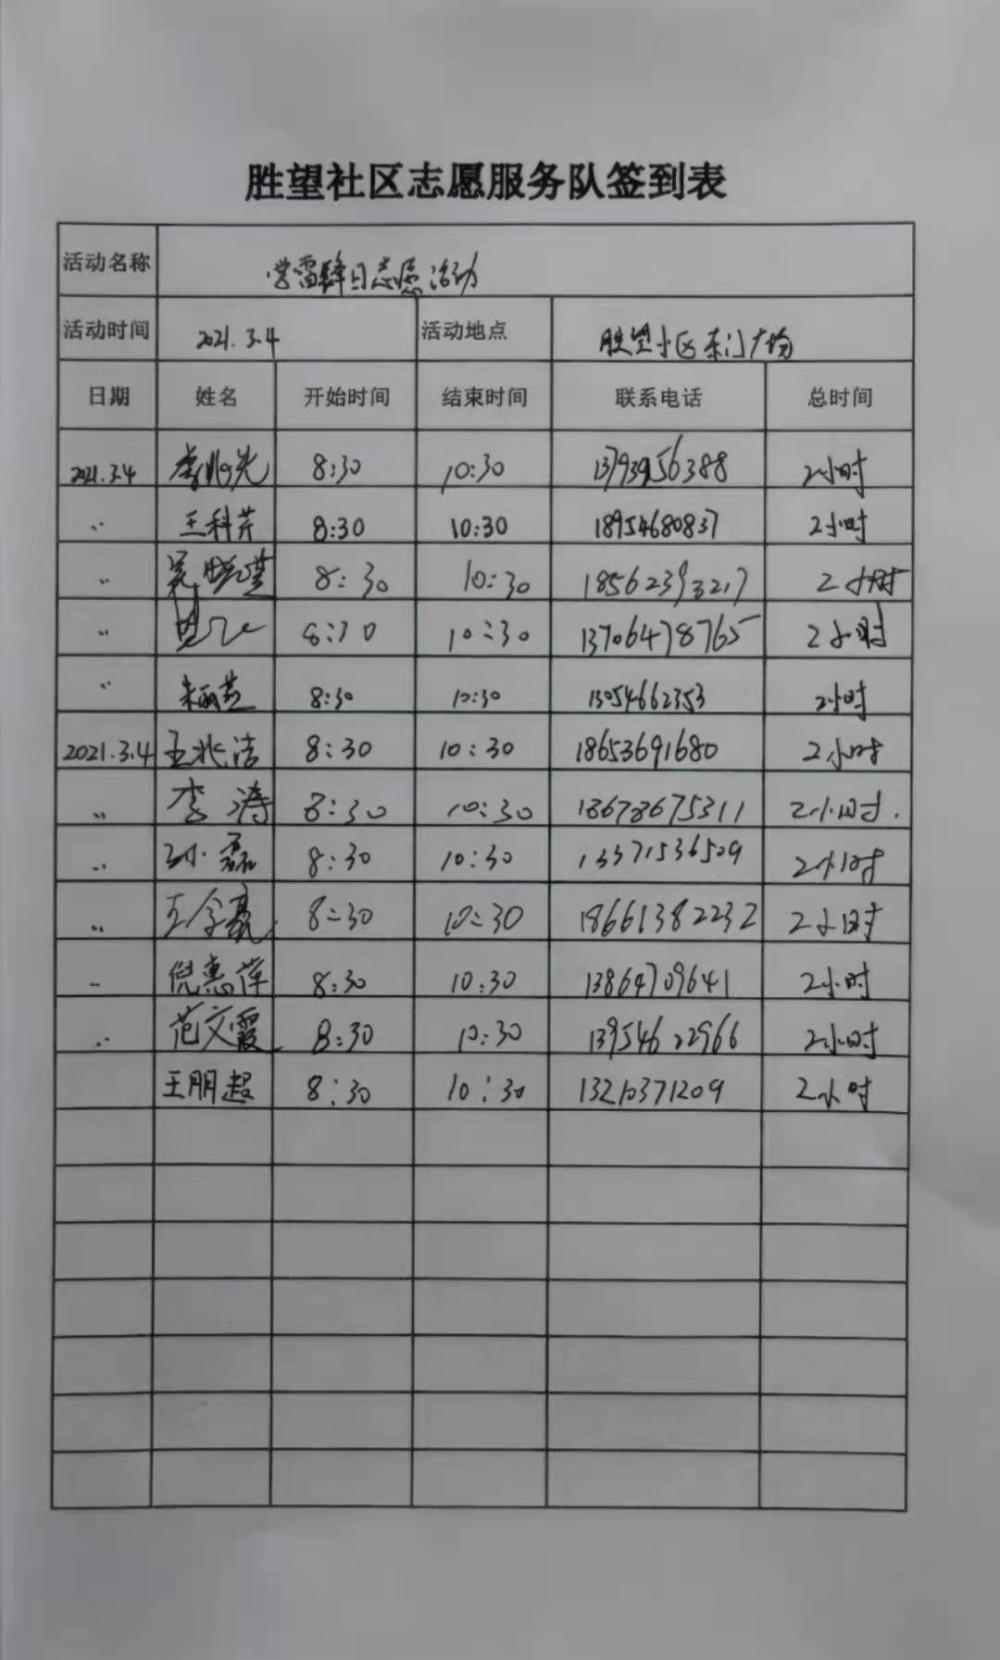 胜望社区志愿服务队签到表
活动名称 学雷锋日志愿活动
活动时间 2021.3.4 活动地点 胜望小区东门广场
日期 姓名 开始时间 结束时间 联系电话 总时间
2021.3.4 李兆光 8:30 10:30 13793956388 2小时
〃 王科芹 8:30 10:30 18954680837 2小时
〃 8:30 10:30 18562393217 2小时
〃 8:30 10:30 13706478765 2小时
〃 朱丽芝 8:30 10:30 13054662353 2小时
2021.3.4 王兆洁 8:30 10:30 18653691680 2小时
〃 李涛 8:30 10:30 18678675311 2小时.
〃 孙磊 8:30 10:30 13371536509 2小时
〃 8:30 10:30 18661382232 2小时
〃 倪惠萍 8:30 10:30 13864709641 2小时
〃 范文霞 8:30 10:30 13954622966 2小时
王朋超 8:30 10:30 13210371209 2小时